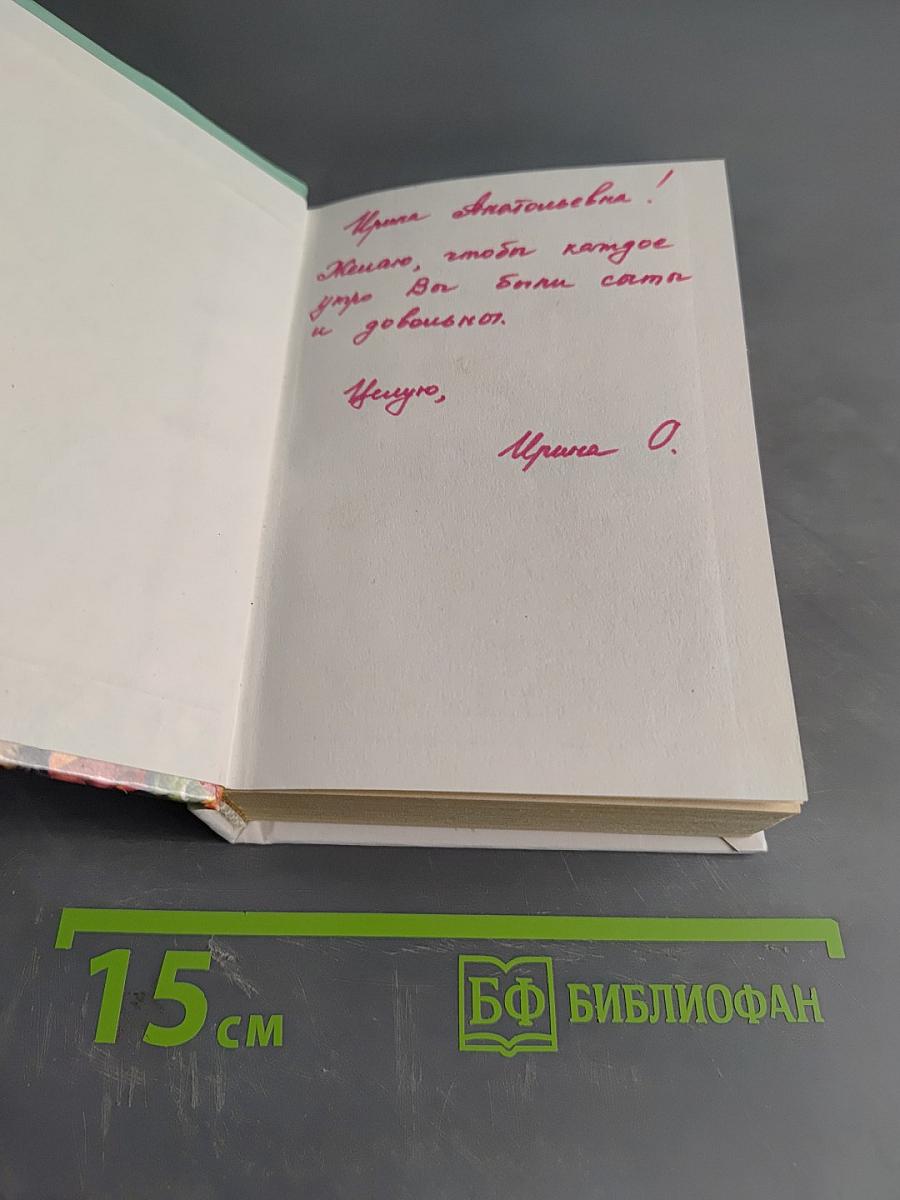 Ирина Анатольевна!
Желаю, чтобы каждое
утро Вы были сыты
и довольны.
Целую,
Ирина О.
15 см
БФ БИБЛИОФАН